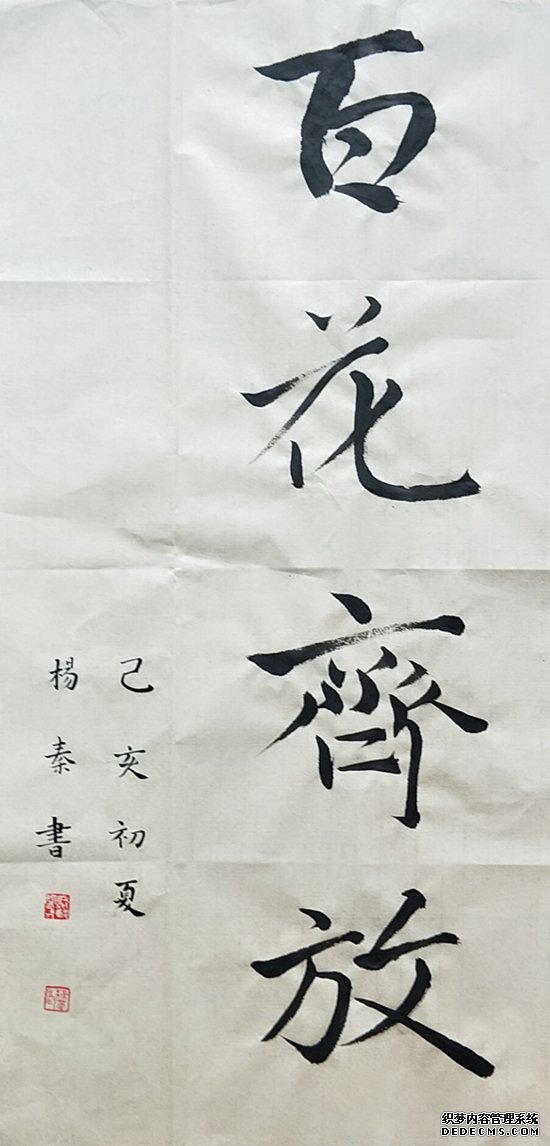 百花齊放
己亥初夏
楊秦書
织梦内容管理系统
DEDECMS.COM